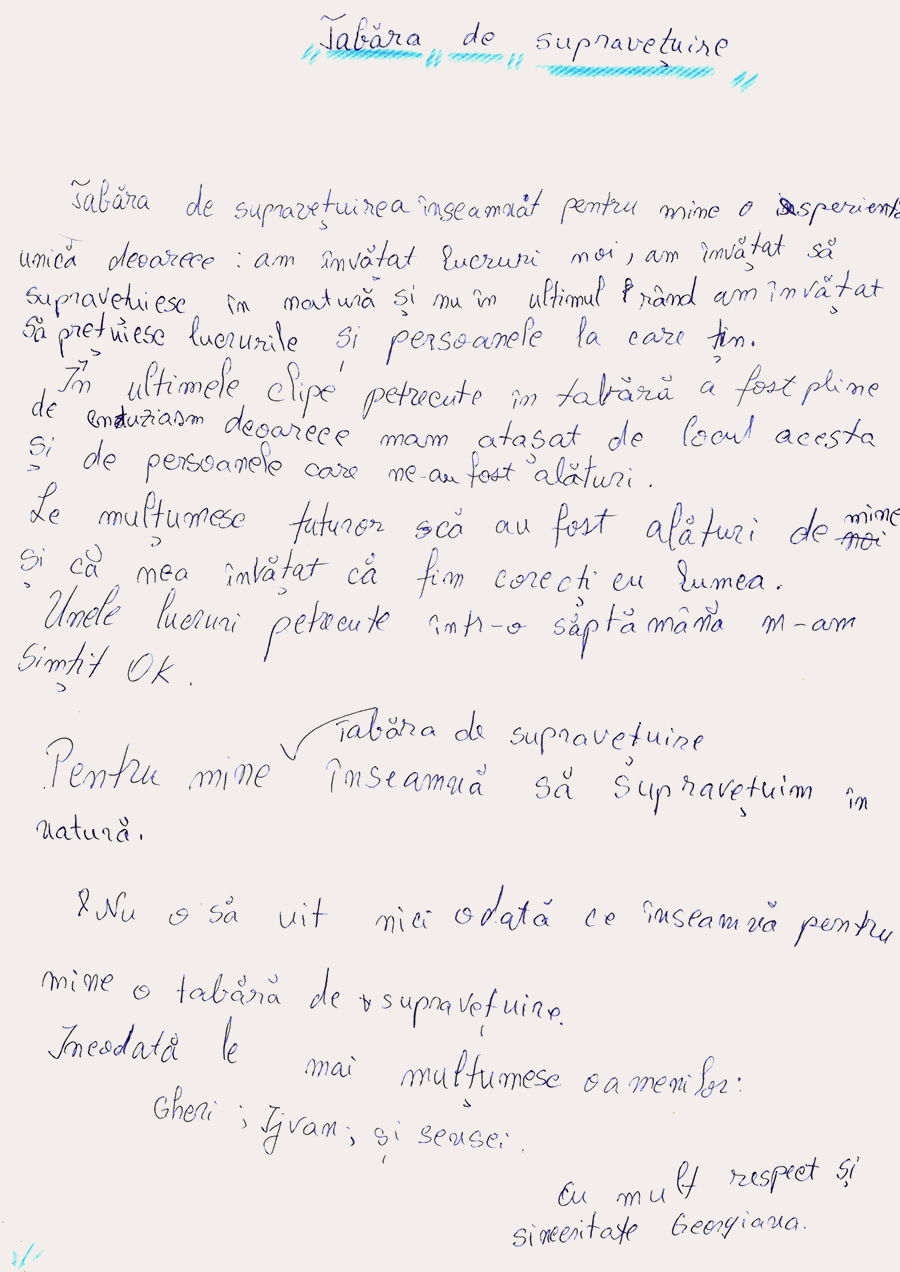 "Tabăra" de "supravețuire"
Tabăra de supravețuirea înseamnăt pentru mine o insperiență
unică deoarece : am învățat lucruri noi, am învățat să
supravețuiesc în natură și nu în ultimul rând am învățat
să prețuiesc lucrurile și persoanele la care țin.
În ultimele clipe petrecute în tabără a fost pline
de entuziasm deoarece mam atașat de locul acesta
și de persoanele care ne-au fost alături.
Le mulțumesc tuturor că au fost alături de mine
și că nea învățat că fim corecți cu lumea.
Unele lucruri petrecute într-o săptămână m-am
simțit OK.
Tabăra de supravețuire
Pentru mine înseamnă să supravețuim în
natură.
Nu o să uit nici odată ce înseamnă pentru
mine o tabără de supravețuire.
Incodată le mai mulțumesc oamenilor:
Gheri ; Ijvan; și sensei.
Cu mult respect și
sinceritate Georgiana.